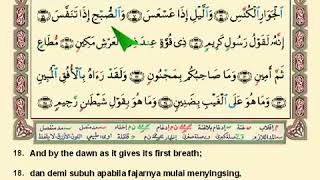 ٱلْجَوَارِ ٱلْكُنَّسِ ۝ وَٱلَّيْلِ إِذَا عَسْعَسَ ۝ وَٱلصُّبْحِ إِذَا تَنَفَّسَ ۝
إِنَّهُۥ لَقَوْلُ رَسُولٍ كَرِيمٍ ۝ ذِى قُوَّةٍ عِندَ ذِى ٱلْعَرْشِ مَكِينٍ ۝ مُّطَاعٍ
ثَمَّ أَمِينٍ ۝ وَمَا صَاحِبُكُم بِمَجْنُونٍ ۝ وَلَقَدْ رَءَاهُ بِٱلْأُفُقِ ٱلْمُبِينِ
۝ وَمَا هُوَ عَلَى ٱلْغَيْبِ بِضَنِينٍ ۝ وَمَا هُوَ بِقَوْلِ شَيْطَٰنٍ رَّجِيمٍ ۝
18. And by the dawn as it gives its first breath;
18. dan demi subuh apabila fajarnya mulai menyingsing,